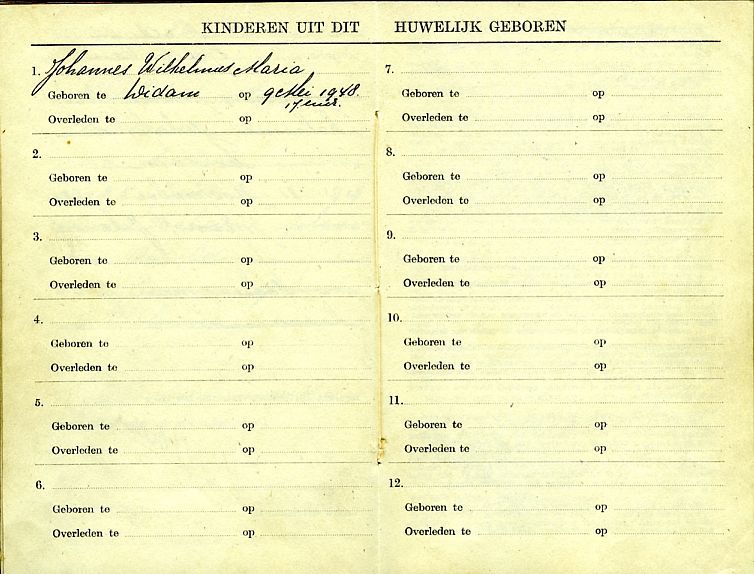 KINDEREN UIT DIT HUWELIJK GEBOREN
1. Johannes Wilhelmus Maria
Geboren te op 9 Mei 1948.
17 uur.
Overleden te op
2.
Geboren te op
Overleden te op
3.
Geboren te op
Overleden te op
4.
Geboren te op
Overleden te op
5.
Geboren te op
Overleden te op
6.
Geboren te op
Overleden te op
7.
Geboren te op
Overleden te op
8.
Geboren te op
Overleden te op
9.
Geboren te op
Overleden te op
10.
Geboren te op
Overleden te op
11.
Geboren te op
Overleden te op
12.
Geboren te op
Overleden te op